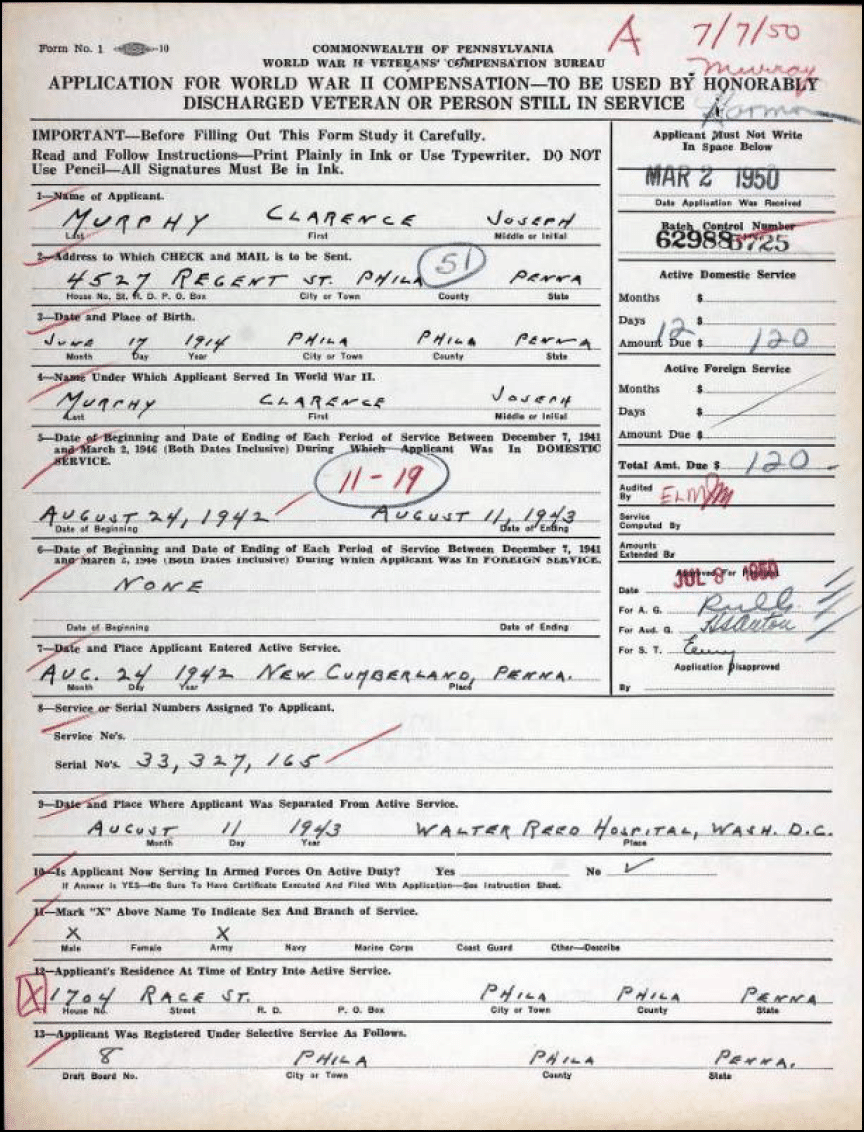 Form No. 1 10
COMMONWEALTH OF PENNSYLVANIA
WORLD WAR II VETERANS' COMPENSATION BUREAU
APPLICATION FOR WORLD WAR II COMPENSATION—TO BE USED BY HONORABLY
DISCHARGED VETERAN OR PERSON STILL IN SERVICE
A 7/7/50
Murray
Harmon
IMPORTANT—Before Filling Out This Form Study it Carefully.
Read and Follow Instructions—Print Plainly in Ink or Use Typewriter. DO NOT
Use Pencil—All Signatures Must Be in Ink.
1—Name of Applicant.
MURPHY CLARENCE JOSEPH
Last First Middle or Initial
2—Address to Which CHECK and MAIL is to be Sent.
4527 REGENT ST. PHILA 51 PENNA
House No. St. R. D. P. O. Box City or Town County State
3—Date and Place of Birth.
JUNE 17 1914 PHILA PHILA PENNA
Month Day Year City or Town County State
4—Name Under Which Applicant Served In World War II.
MURPHY CLARENCE JOSEPH
Last First Middle or Initial
5—Date of Beginning and Date of Ending of Each Period of Service Between December 7, 1941
and March 2, 1946 (Both Dates Inclusive) During Which Applicant Was In DOMESTIC
SERVICE.
11-19
AUGUST 24, 1942 AUGUST 11, 1943
Date of Beginning Date of Ending
6—Date of Beginning and Date of Ending of Each Period of Service Between December 7, 1941
and March 2, 1946 (Both Dates Inclusive) During Which Applicant Was In FOREIGN SERVICE.
NONE
Date of Beginning Date of Ending
7—Date and Place Applicant Entered Active Service.
AUG. 24 1942 NEW CUMBERLAND, PENNA.
Month Day Year Place
Applicant Must Not Write
In Space Below
MAR 2 1950
Date Application Was Received
Batch Control Number
62988 5725
Active Domestic Service
Months $
Days $
12
Amount Due $ 120
Active Foreign Service
Months $
Days $
Amount Due $
Total Amt. Due $ 120
Audited
By ELM
Service
Computed By
Amounts
Extended By
Approved For Payment
JUL 8 1950
Date
For A. G.
For Aud. G.
For S. T.
Application Disapproved
By
8—Service or Serial Numbers Assigned To Applicant.
Service No's.
Serial No's. 33, 327, 165
9—Date and Place Where Applicant Was Separated From Active Service.
AUGUST 11 1943 WALTER REED HOSPITAL, WASH. D.C.
Month Day Year Place
10—Is Applicant Now Serving In Armed Forces On Active Duty? Yes No ✓
If Answer is YES—Be Sure To Have Certificate Executed And Filed With Application—See Instruction Sheet.
11—Mark "X" Above Name To Indicate Sex And Branch of Service.
X X
Male Female Army Navy Marine Corps Coast Guard Other—Describe
12—Applicant's Residence At Time of Entry Into Active Service.
X 1704 RACE ST. PHILA PHILA PENNA
House No. Street R. D. P. O. Box City or Town County State
13—Applicant Was Registered Under Selective Service As Follows.
8 PHILA PHILA PENNA.
Draft Board No. City or Town County State